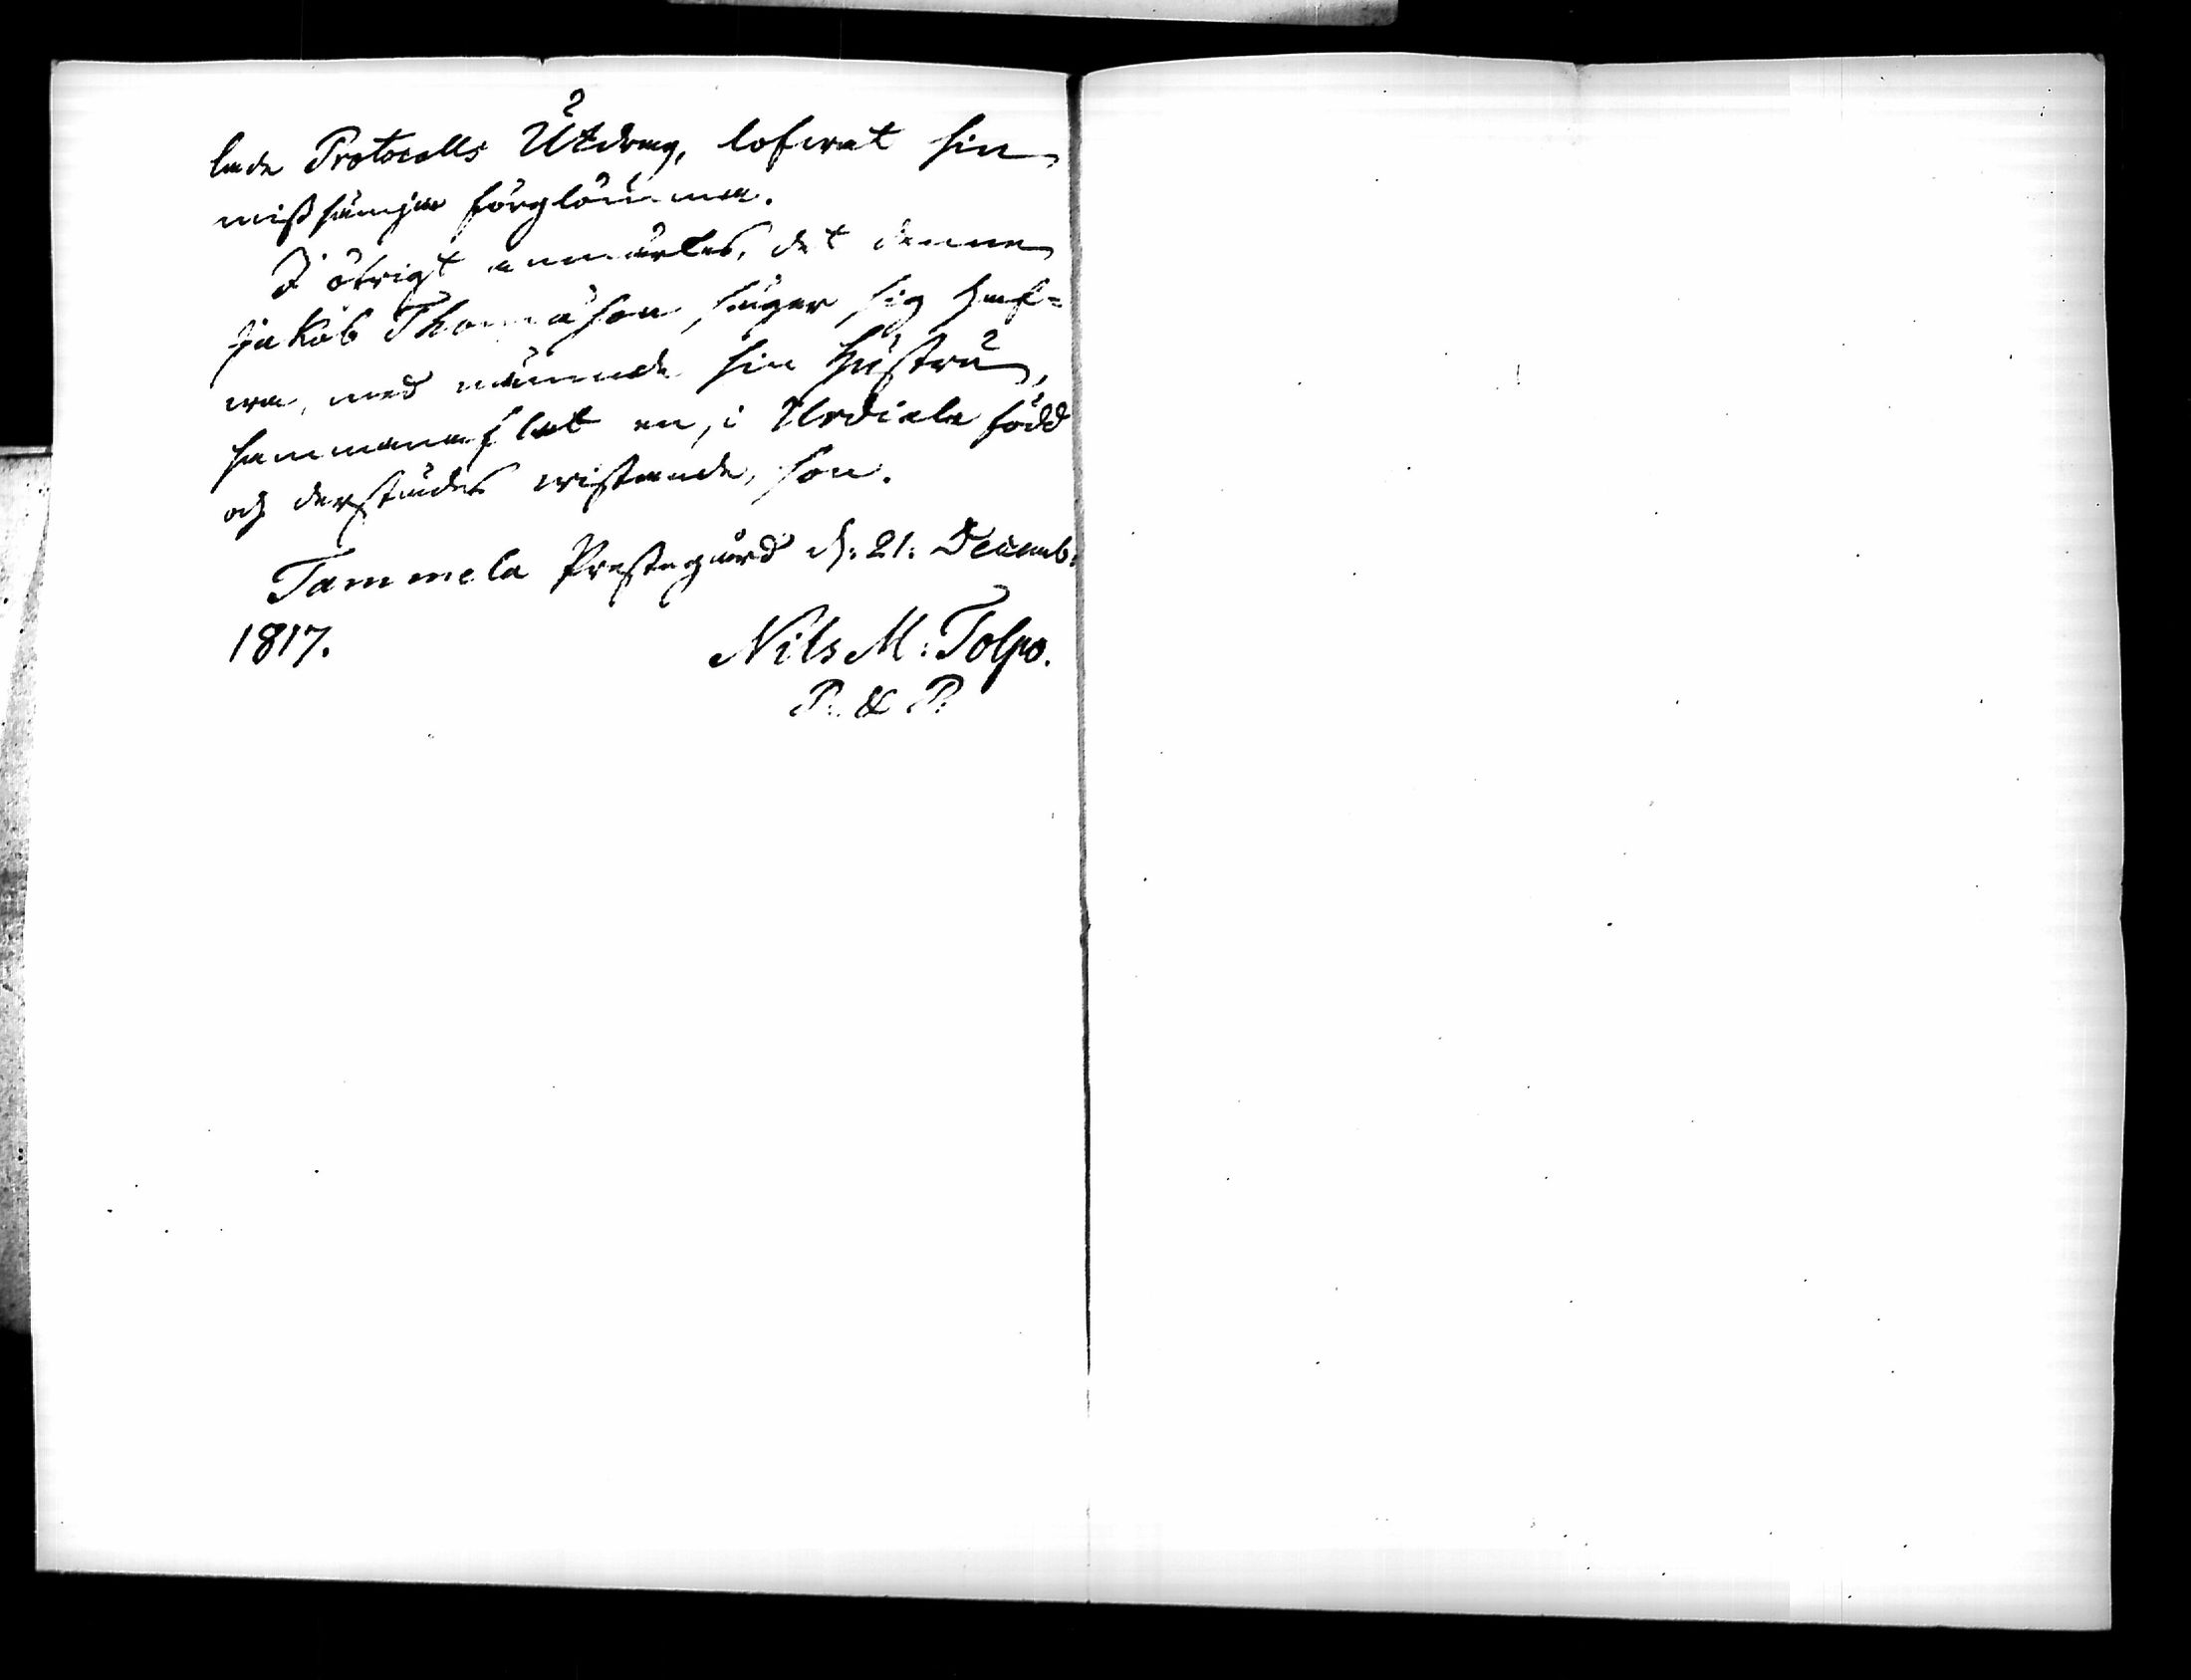 lade Protocolls Utdrag, lofwat sin
missämja förglömma.
I öfrigt anmärkes, det denne
Jakob Thomasson, säger sig haf-
wa, med nämnde sin hustru,
sammanaflat en, i Urdiala född
och derstädes wistande, son.
Tammela Prestegård d. 21. Decemb.
1817.
Nils M: Tolpo.
P. & P.